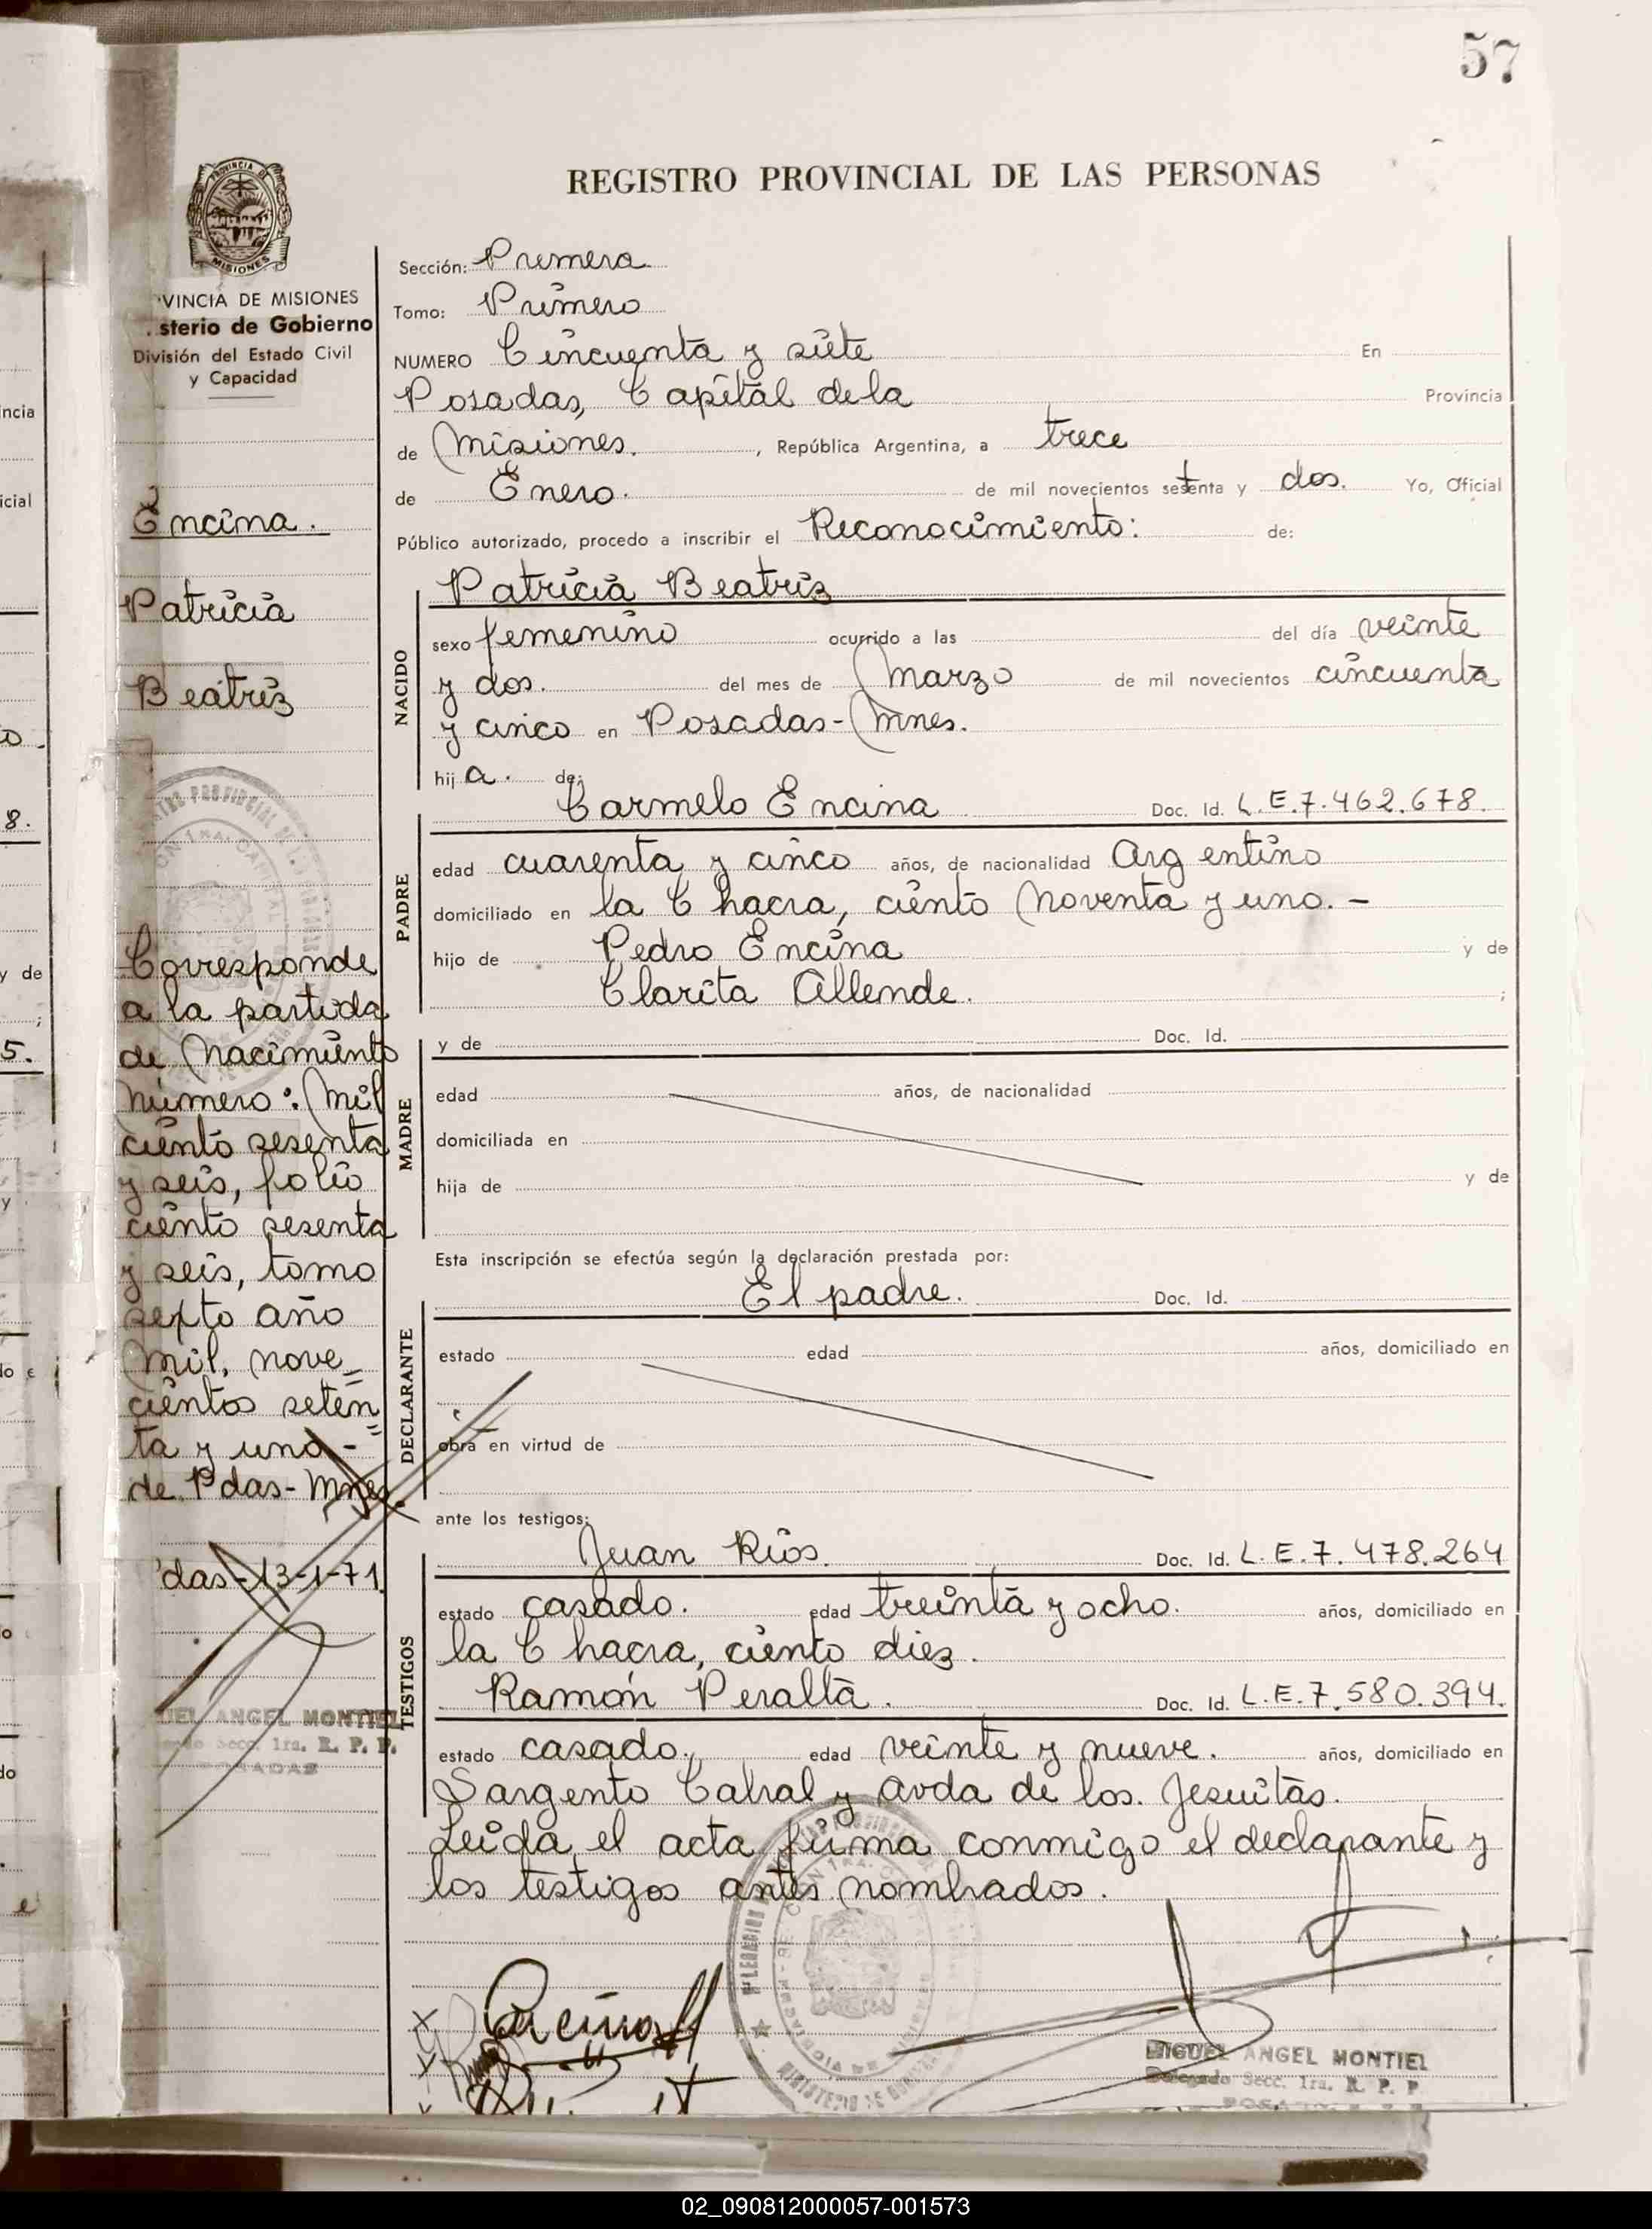 57
REGISTRO PROVINCIAL DE LAS PERSONAS
PROVINCIA D
MISIONES
VINCIA DE MISIONES
sterio de Gobierno
División del Estado Civil
y Capacidad
Encina.
Patricia
Beatriz
Corresponde
a la partida
de Nacimiento
número: Mil
ciento sesenta
y seis, folio
ciento sesenta
y seis, tomo
sexto año
Mil, nove=
cientos seten
ta y uno-=
de Pdas-Mnes.
das-13-1-71.
UEL ANGEL MONTIEL
Secc. 1ra. R. P. P.
POSADAS
Sección: Primera
Tomo: Primero
NUMERO Cincuenta y siete En
Posadas, Capital de la Provincia
de Misiones. , República Argentina, a trece
de Enero. de mil novecientos setenta y dos. Yo, Oficial
Público autorizado, procedo a inscribir el Reconocimiento: de:
NACIDO
Patricia Beatriz
sexo femenino ocurrido a las del día veinte
y dos. del mes de Marzo de mil novecientos cincuenta
y cinco en Posadas-Mnes.
hij a. de:
PADRE
Carmelo Encina Doc. Id. L.E.7.462.678.
edad cuarenta y cinco años, de nacionalidad Argentino
domiciliado en la Chacra, ciento Noventa y uno.-
hijo de Pedro Encina y de
Clarita Allende. ;
MADRE
y de Doc. Id.
edad años, de nacionalidad
domiciliada en
hija de y de
Esta inscripción se efectúa según la declaración prestada por:
DECLARANTE
El padre. Doc. Id.
estado edad años, domiciliado en
obra en virtud de
ante los testigos:
TESTIGOS
Juan Ríos. Doc. Id. L.E.7.478.264
estado casado. edad treinta y ocho. años, domiciliado en
la Chacra, ciento diez.
Ramón Peralta. Doc. Id. L.E.7.580.394.
estado casado. edad veinte y nueve. años, domiciliado en
Sargento Cabral y avda de los. Jesuitas.
Leida el acta firma conmigo el declarante y
los testigos antes nombrados.
MIGUEL ANGEL MONTIEL
Delegado Secc. 1ra. R. P. P
02_090812000057-001573